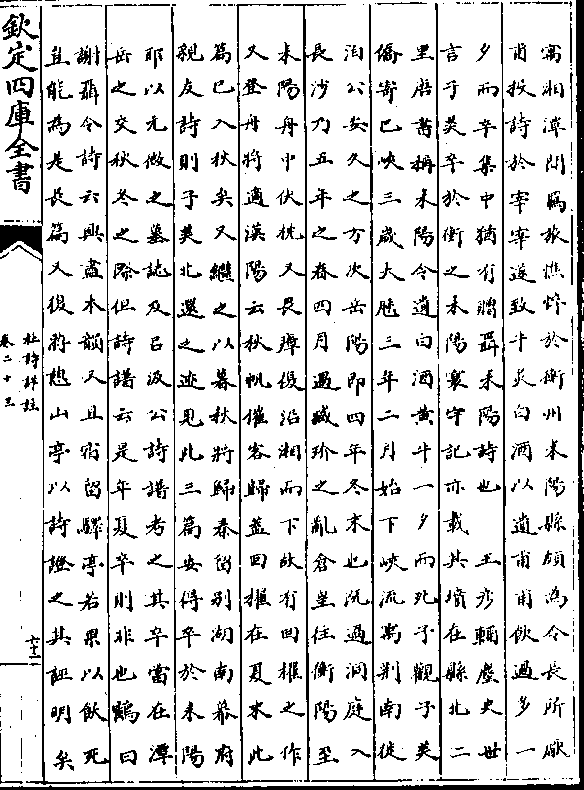 寓湘潭間羈旅憔悴於衡州耒陽縣頗為令長所厭
甫投詩於宰宰遂致牛炙白酒以遺甫甫飲過多一
夕而卒集中猶有贈聶耒陽詩也　王彥輔麈史世
言子美卒於衡之耒陽寰宇記亦載其墳在縣北二
里唐書稱耒陽令遺白酒黄牛一夕而死予觀子美
僑寄巴峽三歲大厯三年二月始下峽流寓荆南徙
泊公安久之方次岳陽即四年冬末也既過洞庭入
長沙乃五年之春四月遇臧玠之亂倉皇往衡陽至
耒陽舟中伏枕又畏瘴復沿湘而下故有回櫂之作
又登舟將適漢陽云秋帆催客歸蓋回櫂在夏末此
篇已入秋矣又繼之以暮秋將歸秦留別湖南幕府
親友詩則子美北還之迹見此三篇安得卒於耒陽
耶以元微之墓誌及呂汲公詩譜考之其卒當在潭
岳之交秋冬之際但詩譜云是年夏卒則非也鶴曰
謝聶令詩云興盡本韻又且宿留驛亭若果以飫死
豈能為是長篇又復游憩山亭以詩證之其誣明矣
欽定四庫全書
杜詩詳註
卷二十三